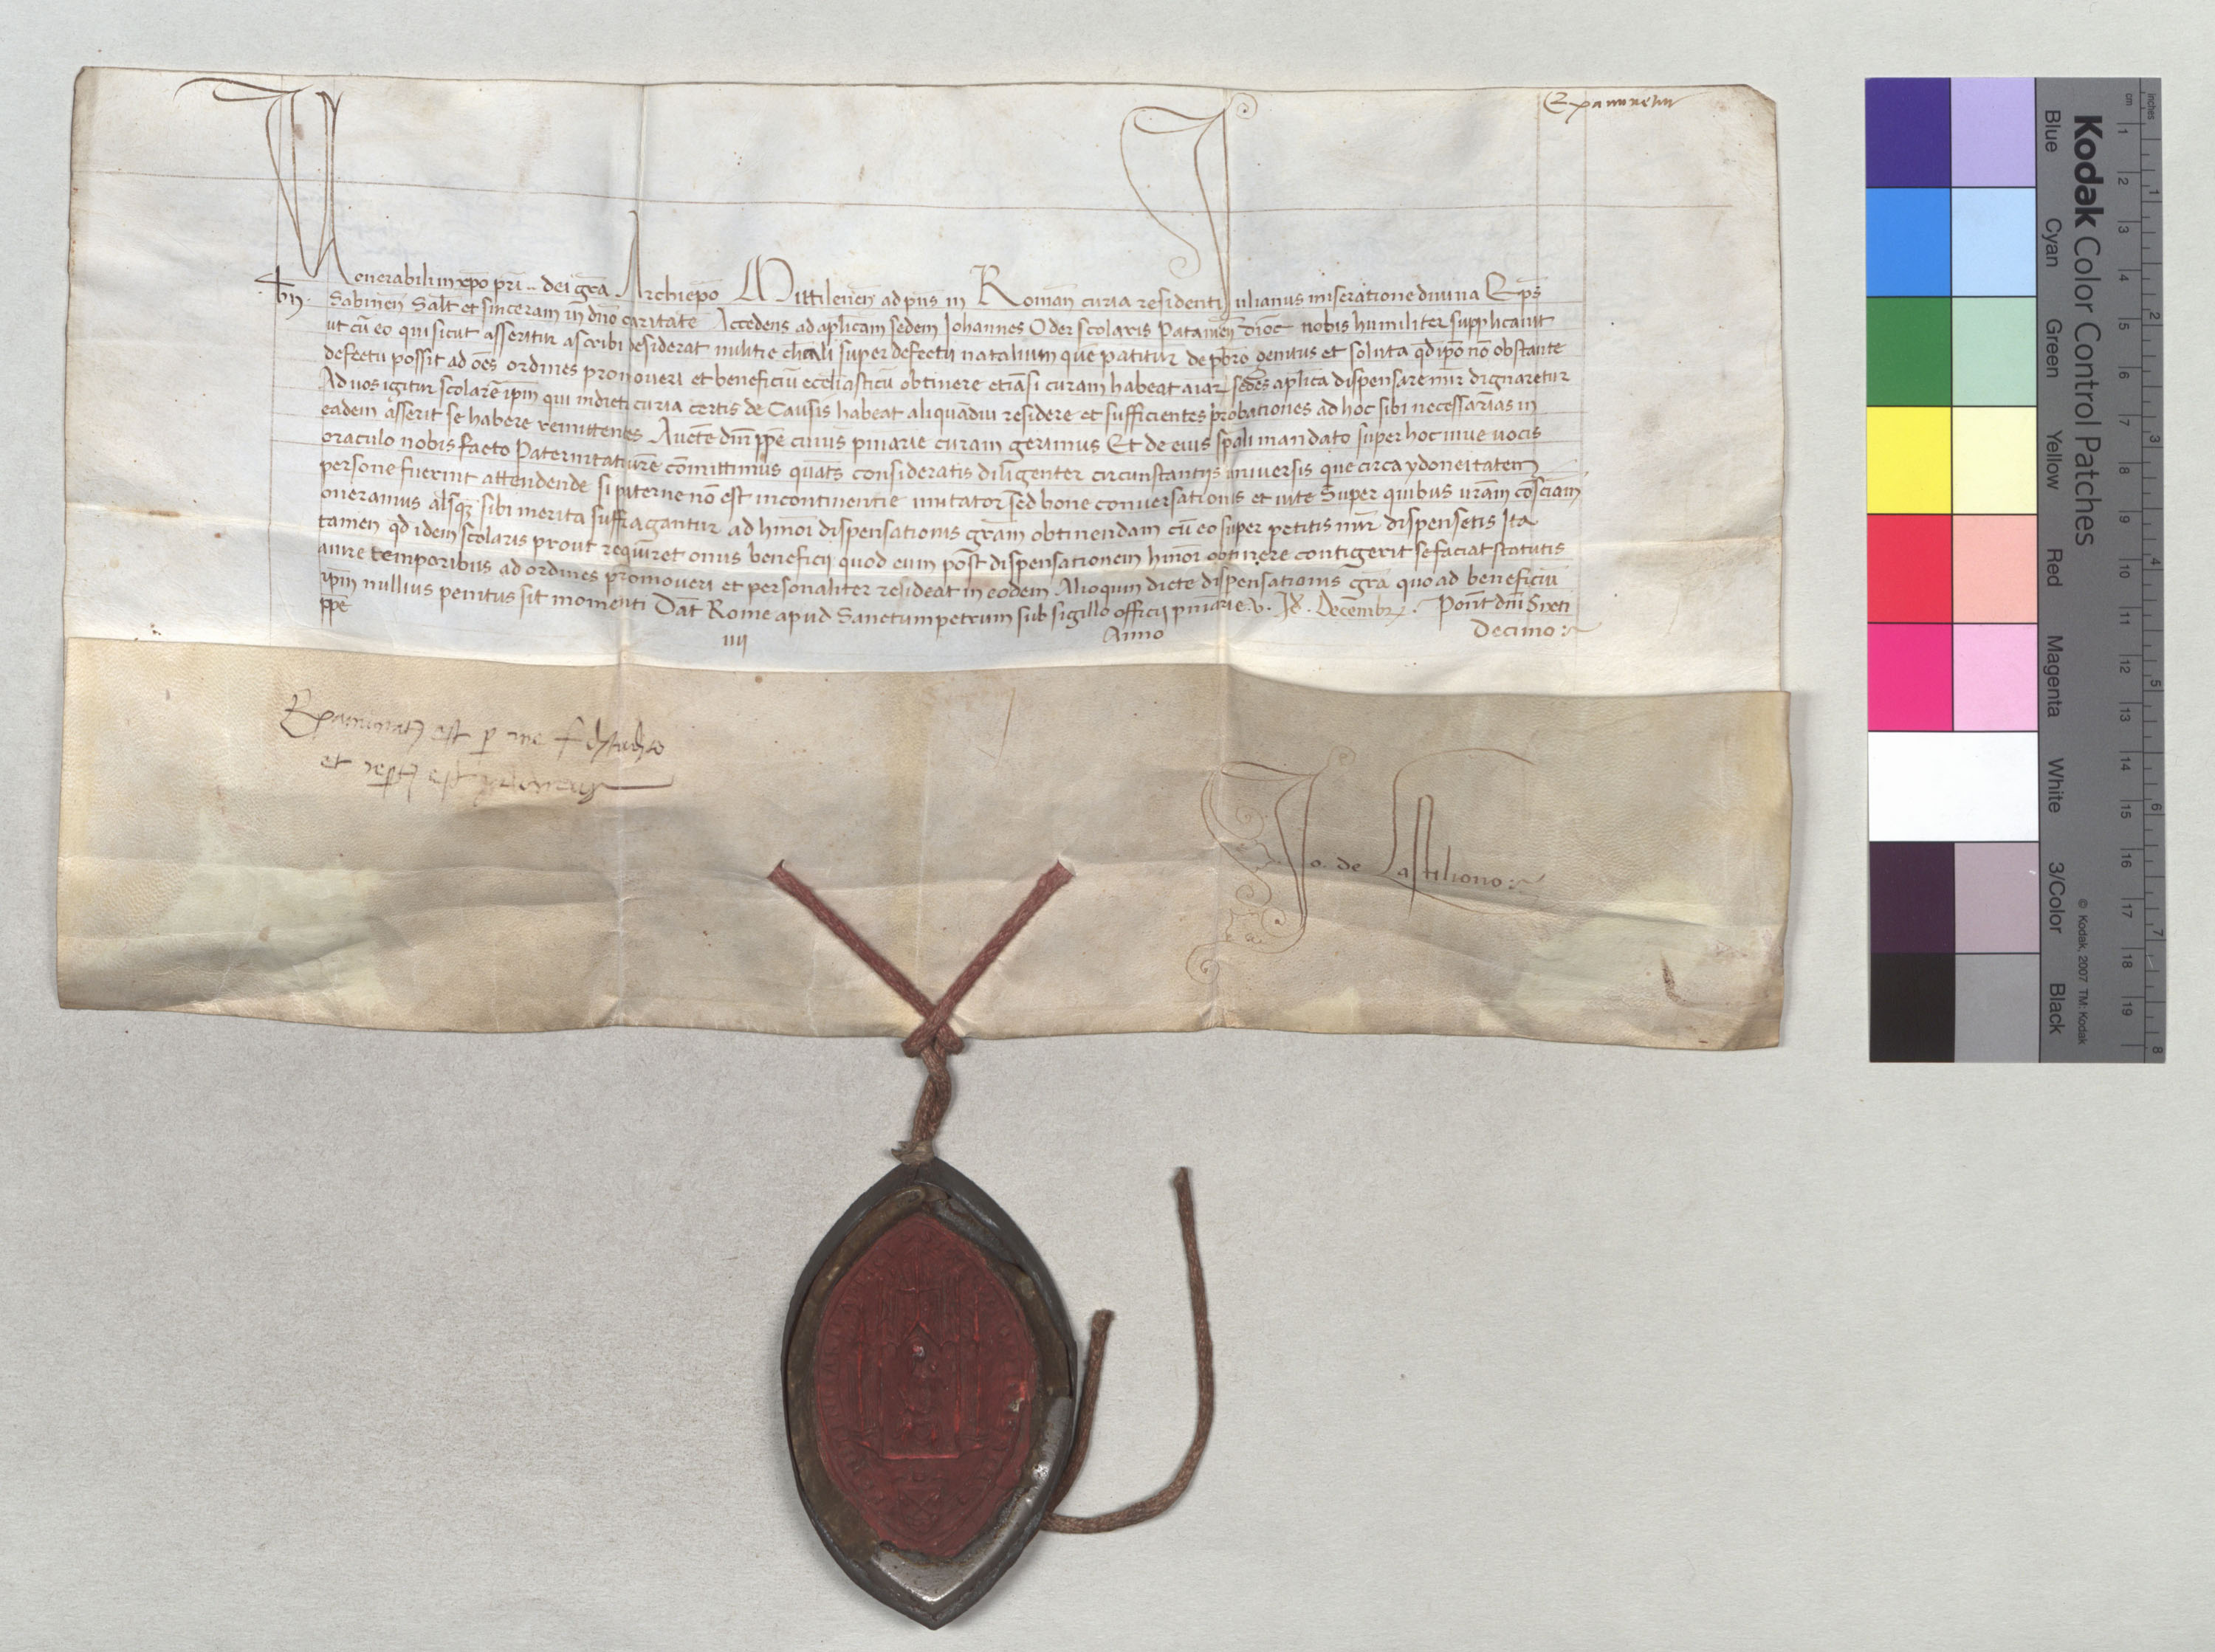 Examinetur
Venerabili in xpo pri .. dei gra Archiepo Mittilenen ad pns in Roman curia residenti Iulianus miseratione divina Eps
Sabinen Salt et sinceram in dno caritate Accedens ad aplicam sedem Johannes Oder scolaris Patavien dioc nobis humiliter supplicavit
ut cu eo qui sicut asseritur ascribi desiderat militie clicali super defectu natalium que patitur de pbro genitus et soluta qd ipo no obstante
defectu possit ad oes ordines promoveri et beneficiu ecclesiasticu obtinere etiasi curam habeat aiar sedes aplica dispensare mir dignaretur
Ad vos igitur scolare ipm qui in dicta curia certis de Causis habeat aliquadiu residere et sufficientes probationes ad hoc sibi necessarias in
eadem asserit se habere remittentes Aucte dni ppe cuius pniarie curam gerimus Et de eius spali mandato super hoc vive vocis
oraculo nobis facto Paternitati vre comittimus quats consideratis diligenter circunstantijs universis que circa ydoneitatem
persone fuerint attendende si paterne no est incontinentie imitator sed bone conversationis et vite Super quibus vram cosciam
oneramus alsqz sibi merita suffragantur ad hmoi dispensationis gram obtinendam cu eo super petitis mir dispensetis Ita
tamen qd idem scolaris prout requiret onus beneficij quod eum post dispensationem hmoi obtinere contigerit se faciat statutis
a iure temporibus ad ordines promoveri et personaliter resideat in eodem Alioquin dicte dispensationis gra quo ad beneficiu
ipm nullius penitus sit momenti Dat Rome apud Sanctum petrum sub sigillo officij pniarie .v. Id. Decembr. Pont dni Sixti
ppe iiij Anno Decimo
Examinatus est p me
et reptus est ydoneus
Jo. de Castiliono
Kodak Color Control Patches
Blue Cyan Green Yellow Red Magenta White 3/Color Black
© Kodak, 2007 TM: Kodak
cm 1 2 3 4 5 6 7 8 9 10 11 12 13 14 15 16 17 18 19
inches 1 2 3 4 5 6 7 8